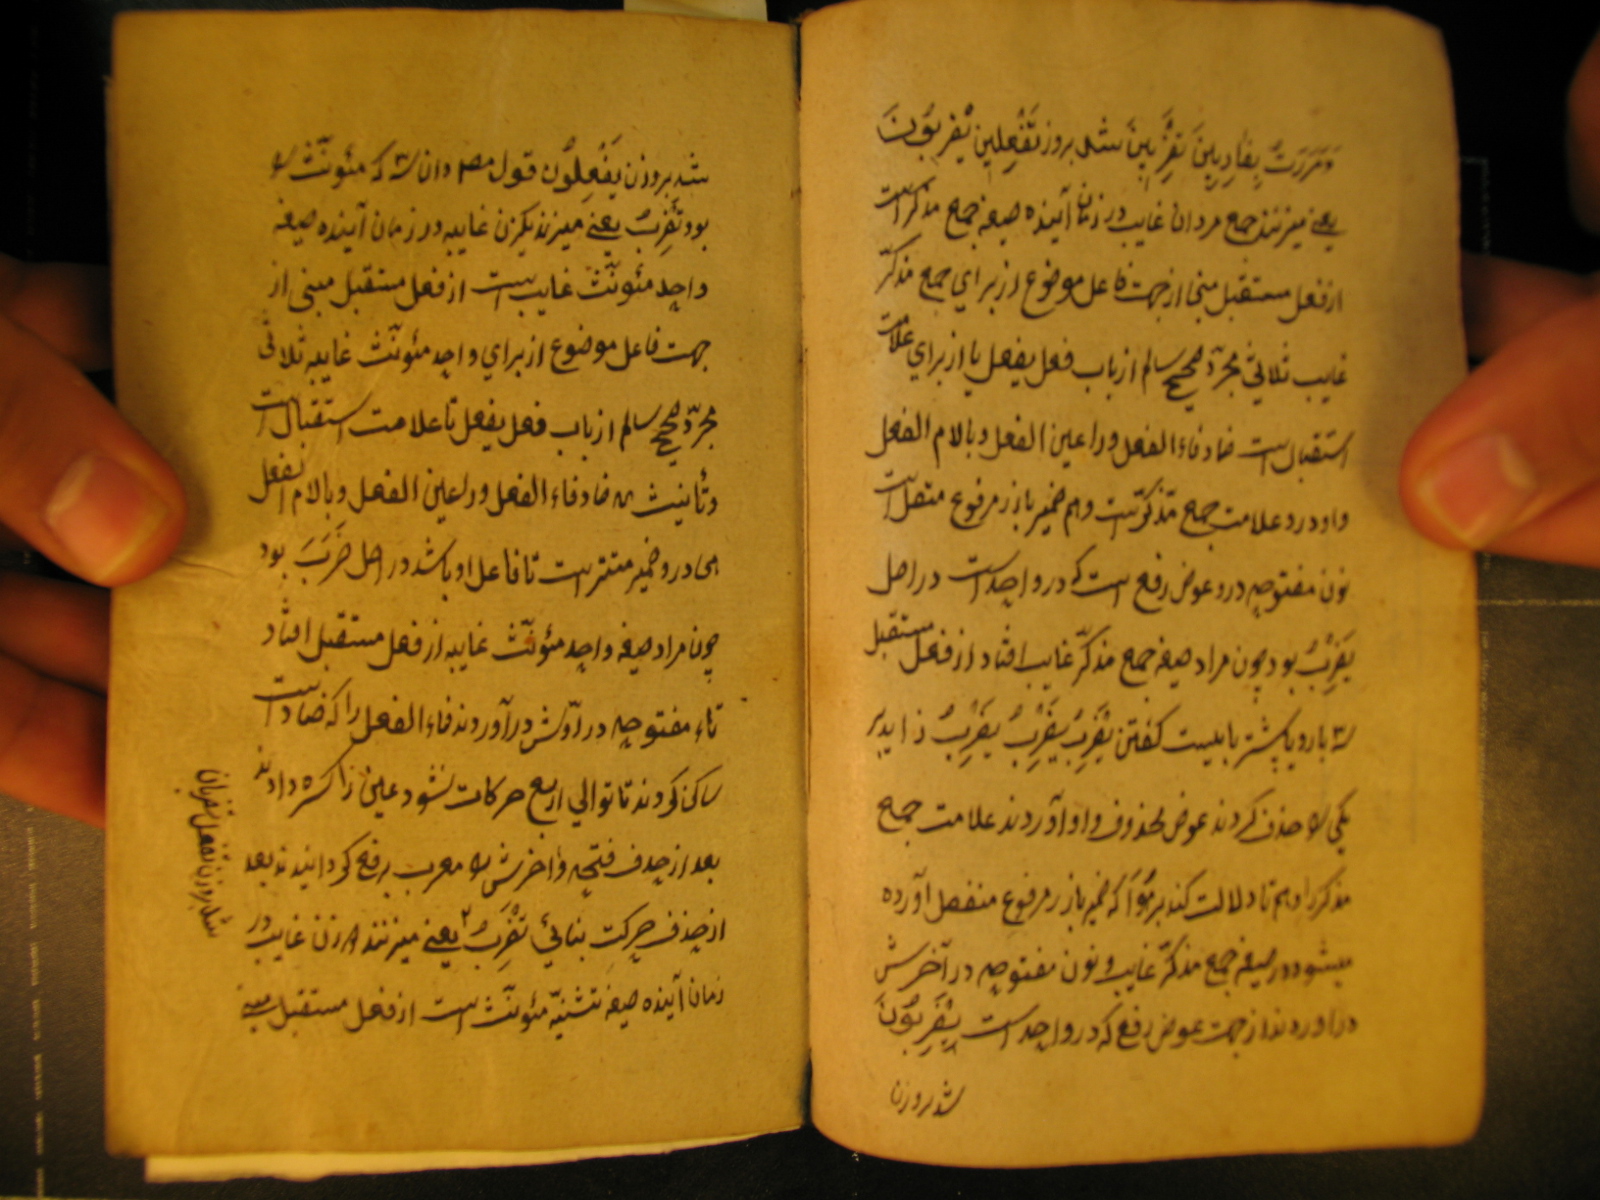 وَمَرَرَتُ بِضَارِبِينَ تَضْرِبِينَ شد بروزن تَفْعِلِينَ یَضْرِبُونَ
یعنے میزنند جمع مردان غایب در زمان آینده صیغه جمع مذکر است
از فعل مستقبل مبنی از جهت فاعل موضوع از برای جمع مذکّر
غایب ثلاثی مجرّد صحیح سالم از باب فعل یفعل یا از برای علامت
استقبال است ضاد فاء الفعل و را عین الفعل و با لام الفعل
واو درو علامت جمع مذکّرست و هم ضمیر بارز مرفوع متصل است
نون مفتوحه درو عوض رفع است که در واحد است در اصل
یَضْرِبُ بود چون مراد صیغه جمع مذکّر غایب افتاد از فعل مستقبل
سه بار و یا پیشتر بایست گفتن یَضْرِبُ یَضْرِبُ یَضْرِبُ زاید بر
یکی را حذف کردند عوض محذوف واو آوردند علامت جمع
مذکر را و هم تا دلالت کند بر هُوَ که ضمیر بارز مرفوع منفصل آورده
میشود در صیغه جمع مذکّر غایب و نون مفتوحه در آخرش
در آوردند از جهت عوض رفع که در واحد است یَضْرِبُونَ
شد بروزن
شد بروزن یَفْعِلُون قول مص و ان سه که مئونّث را
بود تَضْرِبُ یعنے میزند یکزن غایبه در زمان آینده صیغه
واحد مئونّث غایب است از فعل مستقبل مبنی از
جهت فاعل موضوع از برای واحد مئونّث غایبه ثلاثی
مجرّد صحیح سالم از باب فعل یفعل تا علامت استقبال است
و تأنیث ضاد فاء الفعل و را عین الفعل و با لام الفعل
هی درو ضمیر مستتر است تا فاعل او باشد در اصل ضَرَبَ بود
چون مراد صیغه واحد مئونّث غایبه از فعل مستقبل افتاد
تاء مفتوحه در اوّلش در آوردند فاء الفعل را که ضاد است
ساکن کردند تا توالی اربع حرکات نشود عین را کسره دادند
بعد از حذف فتحه و آخرش را معرب برفع گردانیدند بعد
از حذف حرکت بنائی تَضْرِبُ یعنے میزنند زن غایب در
زمان آینده صیغه تثنیّه مئونّث است از فعل مستقبل مبنے
شد بروزن تفعل تضربان